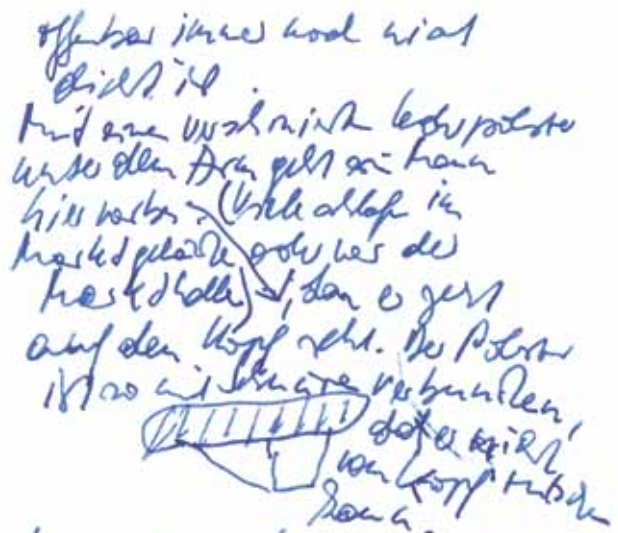 offenbar immer noch nicht
dicht ist.
Mit einem verschnürten Lederpolster
unter dem Arm geht ein Mann
hier vorbei (
Marktgelände oder vor der
Markthalle), den er
auf den Kopf setzt. Der Polster
ist so mit verbunden,
daß er nicht
vom Kopf rutschen
kann